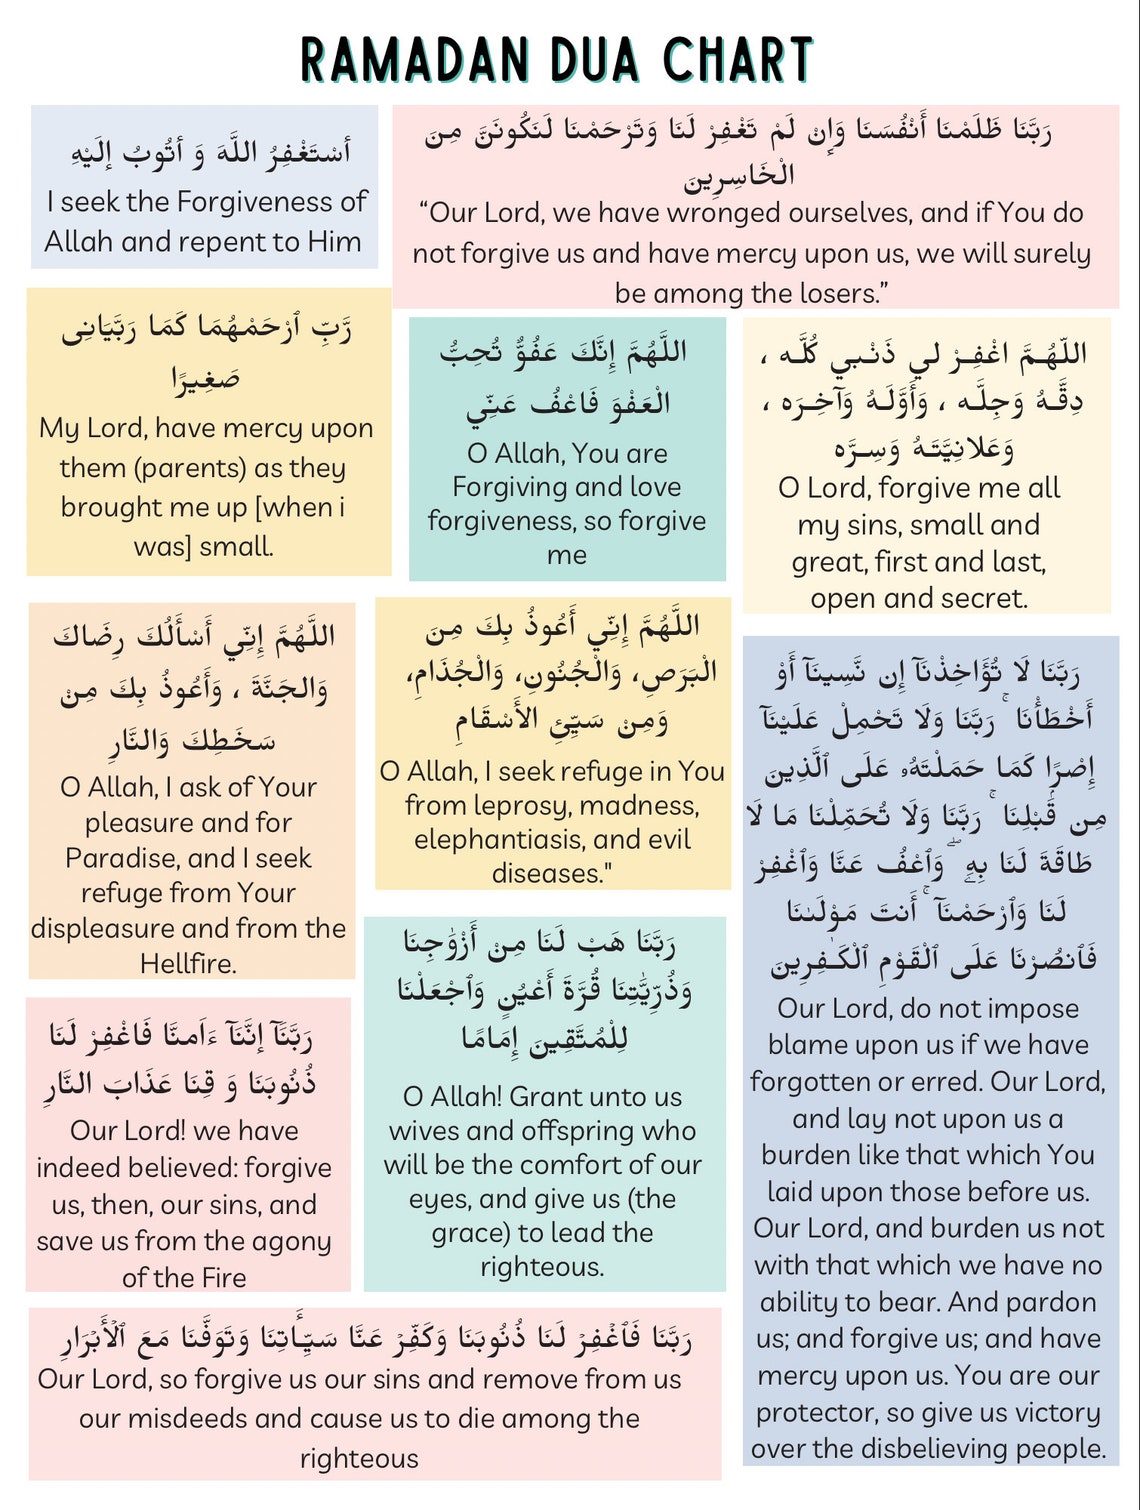 RAMADAN DUA CHART
أسْتَغْفِرُ اللَّهَ وَ أَتُوبُ إلَيْهِ
I seek the Forgiveness of
Allah and repent to Him
رَبَّنَا ظَلَمْنَا أَنْفُسَنَا وَإِن لَمْ تَغْفِرْ لَنَا وَتَرْحَمْنَا لَنَكُونَنَّ مِنَ
الْخَاسِرِينَ
“Our Lord, we have wronged ourselves, and if You do
not forgive us and have mercy upon us, we will surely
be among the losers.”
رَّبِّ ٱرْحَمْهُمَا كَمَا رَبَّيَانِى
صَغِيرًا
My Lord, have mercy upon
them (parents) as they
brought me up [when i
was] small.
اللَّهُمَّ إِنَّكَ عَفُوٌّ تُحِبُّ
الْعَفْوَ فَاعْفُ عَنِّي
O Allah, You are
Forgiving and love
forgiveness, so forgive
me
اللّهُمَّ اغْفِرْ لي ذَنْبي كُلَّه ،
دِقَّهُ وَجِلَّه ، وَأَوَّلَهُ وَآخِرَه ،
وَعَلانِيَّتَهُ وَسِرَّه
O Lord, forgive me all
my sins, small and
great, first and last,
open and secret.
اللَّهُمَّ إِنِّي أَسْأَلُكَ رِضَاكَ
وَالجَنَّةَ ، وَأَعُوذُ بِكَ مِنْ
سَخَطِكَ وَالنَّارِ
O Allah, I ask of Your
pleasure and for
Paradise, and I seek
refuge from Your
displeasure and from the
Hellfire.
اللَّهُمَّ إِنِّي أَعُوذُ بِكَ مِنَ
الْبَرَصِ، وَالْجُنُونِ، وَالْجُذَامِ،
وَمِنْ سَيِّئِ الأَسْقَامِ
O Allah, I seek refuge in You
from leprosy, madness,
elephantiasis, and evil
diseases."
رَبَّنَا لَا تُؤَاخِذْنَآ إِن نَّسِينَآ أَوْ
أَخْطَأْنَا ۚ رَبَّنَا وَلَا تَحْمِلْ عَلَيْنَآ
إِصْرًا كَمَا حَمَلْتَهُۥ عَلَى ٱلَّذِينَ
مِن قَبْلِنَا ۚ رَبَّنَا وَلَا تُحَمِّلْنَا مَا لَا
طَاقَةَ لَنَا بِهِۦ ۖ وَٱعْفُ عَنَّا وَٱغْفِرْ
لَنَا وَٱرْحَمْنَآ ۚ أَنتَ مَوْلَىٰنَا
فَٱنصُرْنَا عَلَى ٱلْقَوْمِ ٱلْكَٰفِرِينَ
Our Lord, do not impose
blame upon us if we have
forgotten or erred. Our Lord,
and lay not upon us a
burden like that which You
laid upon those before us.
Our Lord, and burden us not
with that which we have no
ability to bear. And pardon
us; and forgive us; and have
mercy upon us. You are our
protector, so give us victory
over the disbelieving people.
رَبَّنَا هَبْ لَنَا مِنْ أَزْوَٰجِنَا
وَذُرِّيَّٰتِنَا قُرَّةَ أَعْيُنٍ وَٱجْعَلْنَا
لِلْمُتَّقِينَ إِمَامًا
O Allah! Grant unto us
wives and offspring who
will be the comfort of our
eyes, and give us (the
grace) to lead the
righteous.
رَبَّنَآ إِنَّنَآ ءَامَنَّا فَاغْفِرْ لَنَا
ذُنُوبَنَا وَ قِنَا عَذَابَ النَّارِ
Our Lord! we have
indeed believed: forgive
us, then, our sins, and
save us from the agony
of the Fire
رَبَّنَا فَٱغْفِرْ لَنَا ذُنُوبَنَا وَكَفِّرْ عَنَّا سَيِّـَٔاتِنَا وَتَوَفَّنَا مَعَ ٱلْأَبْرَارِ
Our Lord, so forgive us our sins and remove from us
our misdeeds and cause us to die among the
righteous